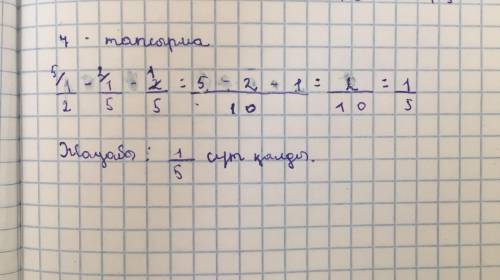 4 - тапсырма
5/ 1/2 - 2/ 1/5 - 1/ 2/5 = 5 - 2 - 1 / 10 = 2/10 = 1/5
Жауабы: 1/5 сүт қалды.